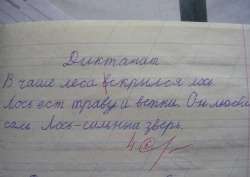 Диктант
В чаще леса скрылся лось.
Лось ест траву и ветки. Он любит
соль. Лось-сильный зверь.
4